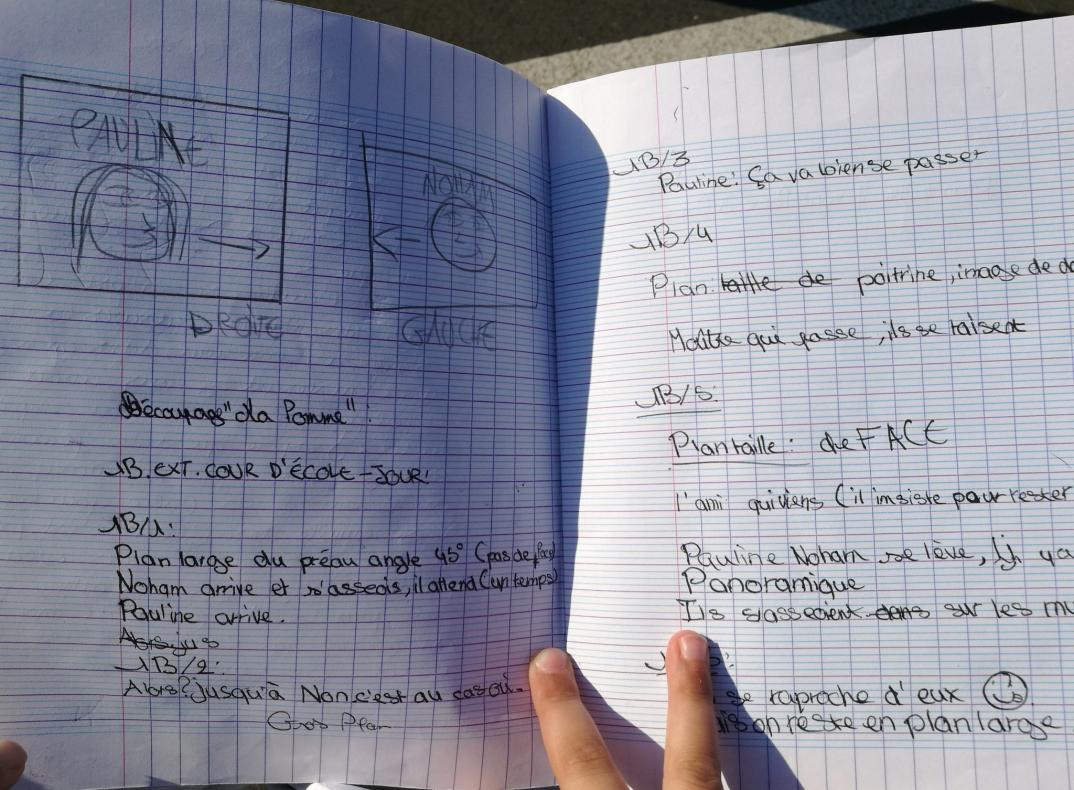 PAULINE
NOHAM
DROITE
GAUCHE
Découpage "La Pomme" :
1B. EXT. COUR D'ÉCOLE - JOUR!
1B/1:
Plan large du préau angle 45° (pas de face)
Noham arrive et s'asseois, il attend (un temps)
Pauline arrive.
1B/2:
Alors? jusqu'à Non c'est au cas où.
Gros Plan
1B/3
Pauline: Ça va bien se passer
1B/4
Plan taille de poitrine, image de
Maître qui passe, ils se taisent
1B/5:
Plan taille: de FACE
l'ami qui viens (il insiste pour rester
Pauline Noham se lève, ya
Panoramique
Ils s'asseoient dans sur les
se raproche d'eux
on reste en plan large